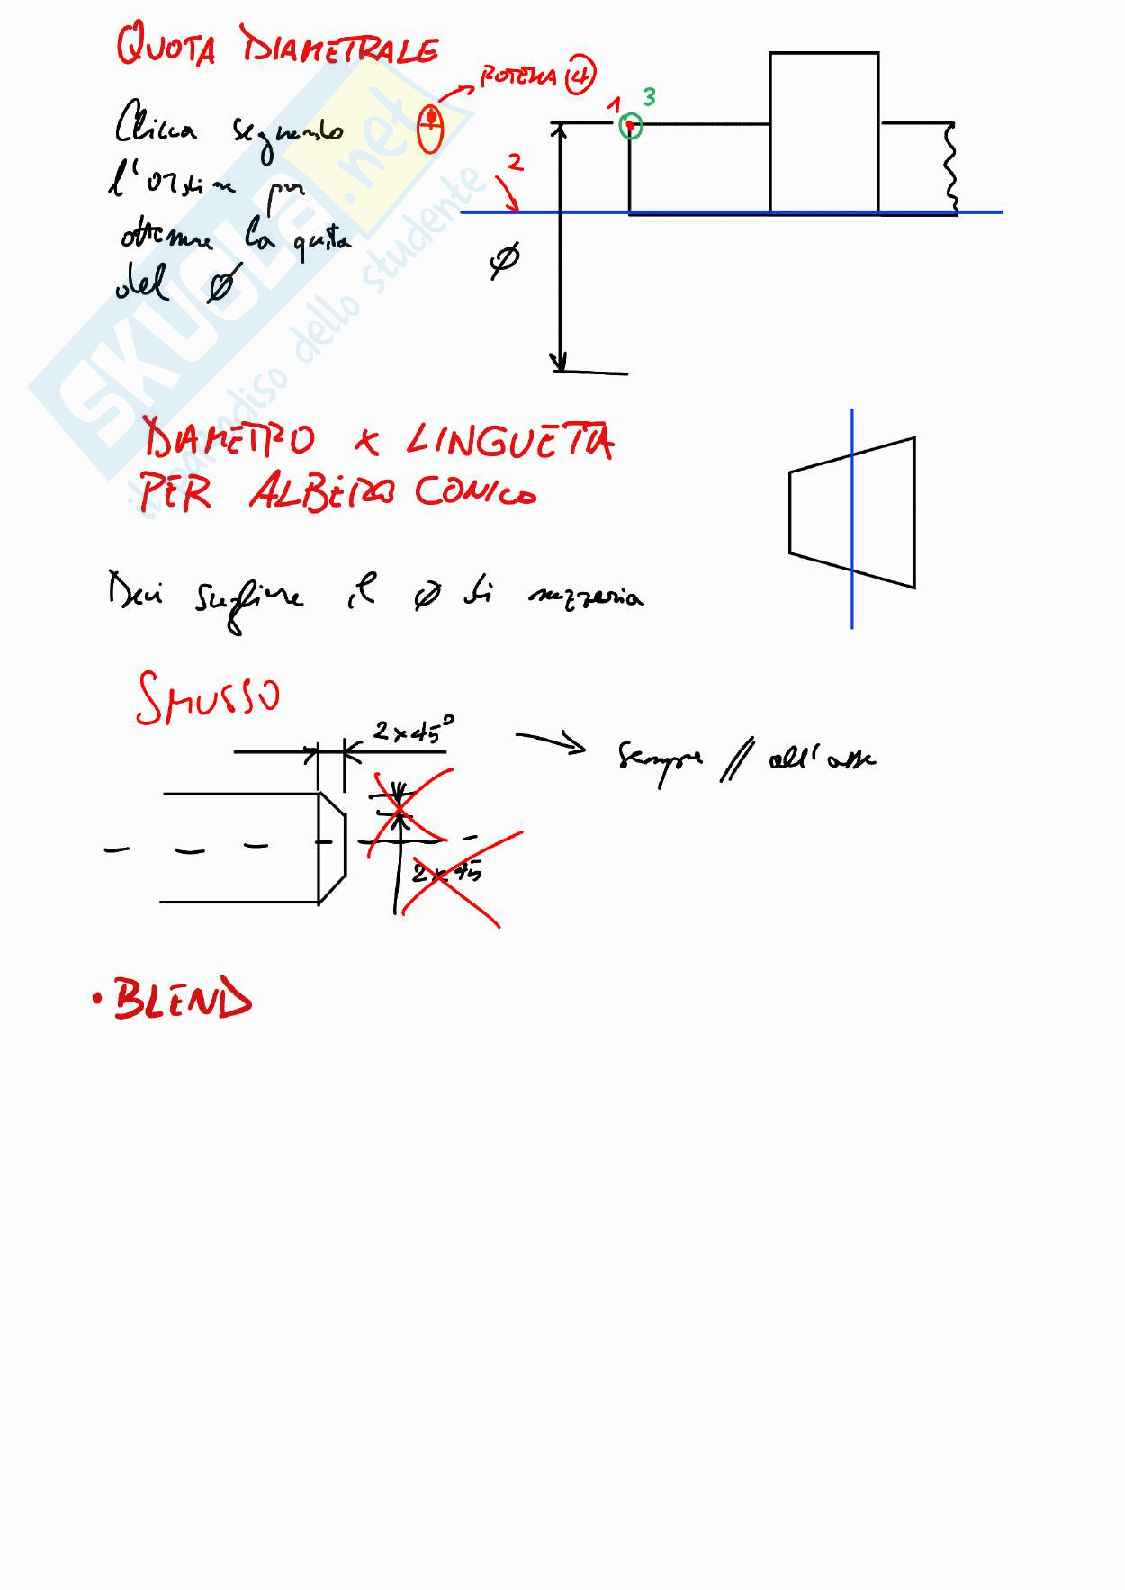 QUOTA DIAMETRALE
ROTELLA 4
Clicca seguendo
l'ordine per
ottenere la quota
del Ø
1 3
2
Ø
SKUOLA.net
il paradiso dello studente
DIAMETRO x LINGUETTA
PER ALBERO CONICO
Devi scegliere il Ø di mezzeria
SMUSSO
2x45°
sempre // all'asse
2x45
• BLEND